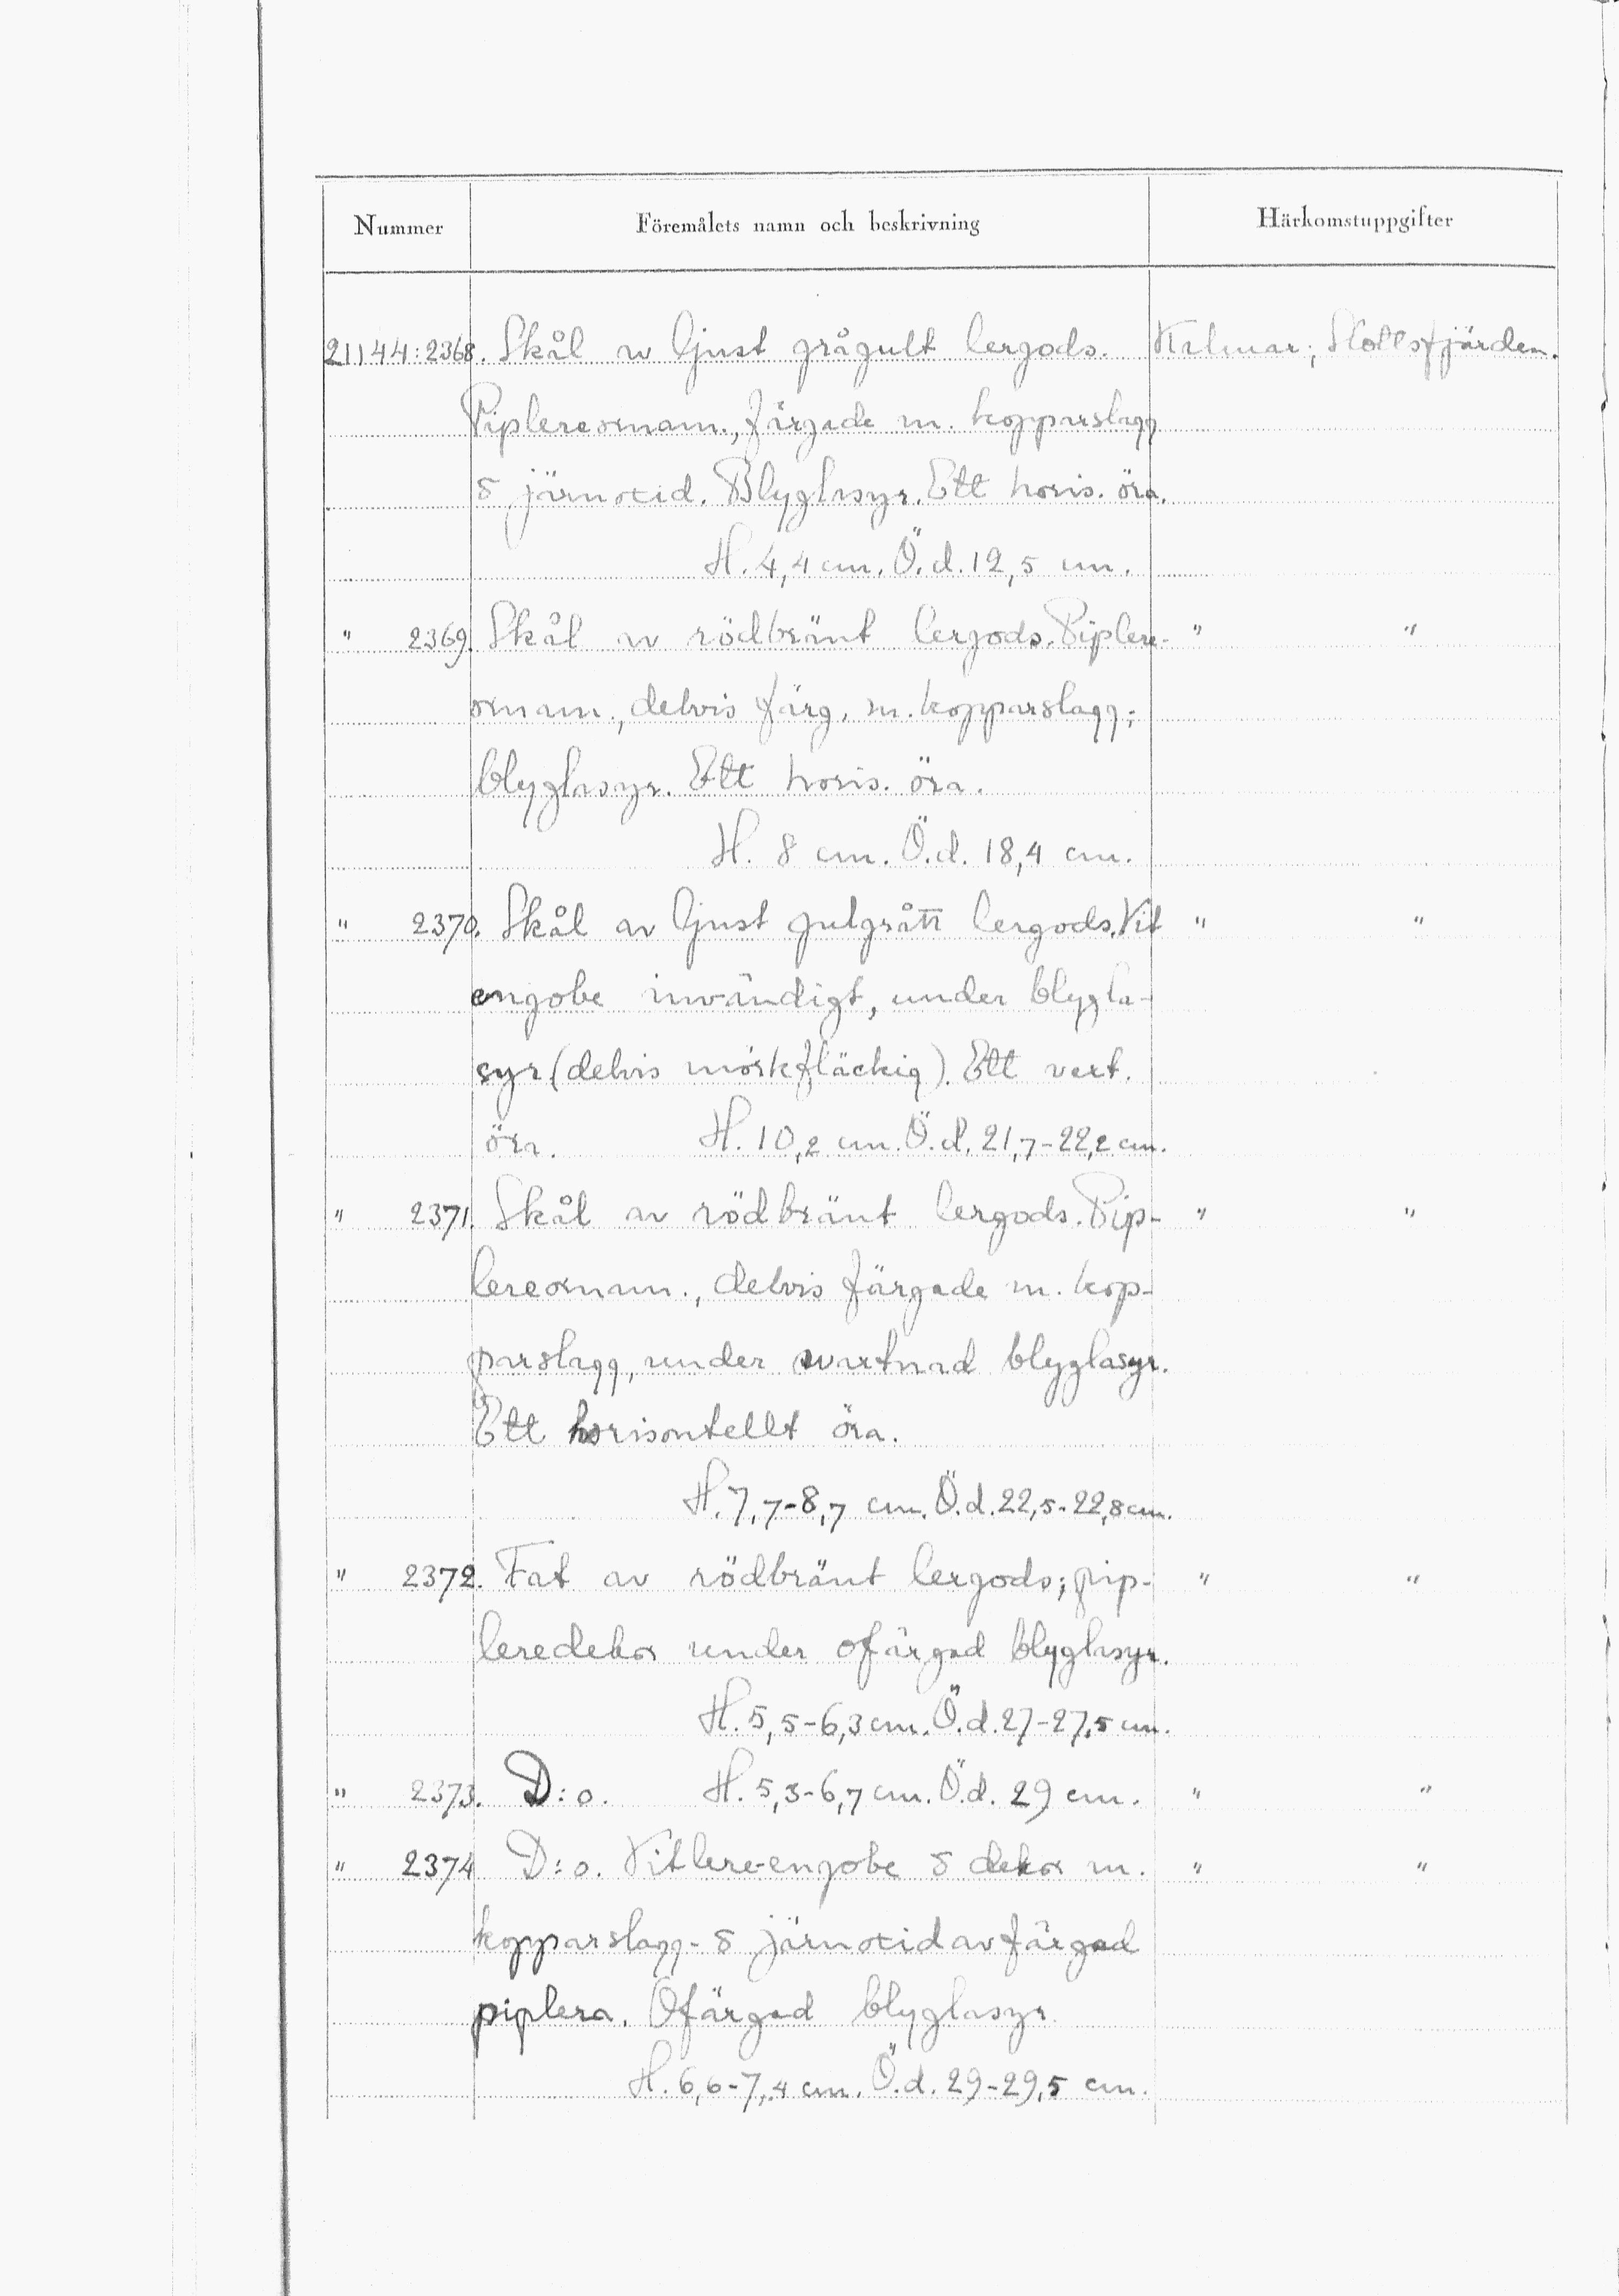 Nummer Föremålets namn och beskrivning Härkomstuppgifter
21144:2368. Skål av ljust grågult lergods. Kalmar; Slottsfjärden.
Piplereornam., färgade m. kopparslagg
& järnoxid. Blyglasyr. Ett horis. öra.
H. 4,4 cm. Ö.d. 12,5 cm.
" 2369. Skål av rödbränt lergods. Piplere- " "
ornam., delvis färg. m. kopparslagg;
blyglasyr. Ett horis. öra.
H. 8 cm. Ö.d. 18,4 cm.
" 2370. Skål av ljust gulgrått lergods. Vit " "
engobe invändigt, under blygla-
syr (delvis mörkfläckig). Ett vert.
öra. H. 10,2 cm. Ö.d. 21,7-22,2 cm.
" 2371. Skål av rödbränt lergods. Pip- " "
lereornam., delvis färgade m. kop-
parslagg, under svartnad blyglasyr.
Ett horisontellt öra.
H. 7,7-8,7 cm. Ö.d. 22,5-22,8 cm.
" 2372. Fat av rödbränt lergods; pip- " "
leredekor under ofärgad blyglasyr.
H. 5,5-6,3 cm. Ö.d. 27-27,5 cm.
" 2373. D:o. H. 5,3-6,7 cm. Ö.d. 29 cm. " "
" 2374 D:o. Vitlere-engobe & dekor m. " "
kopparslagg- & järnoxidavfärgad
piplera. Ofärgad blyglasyr.
H. 6,6-7,4 cm. Ö.d. 29-29,5 cm.